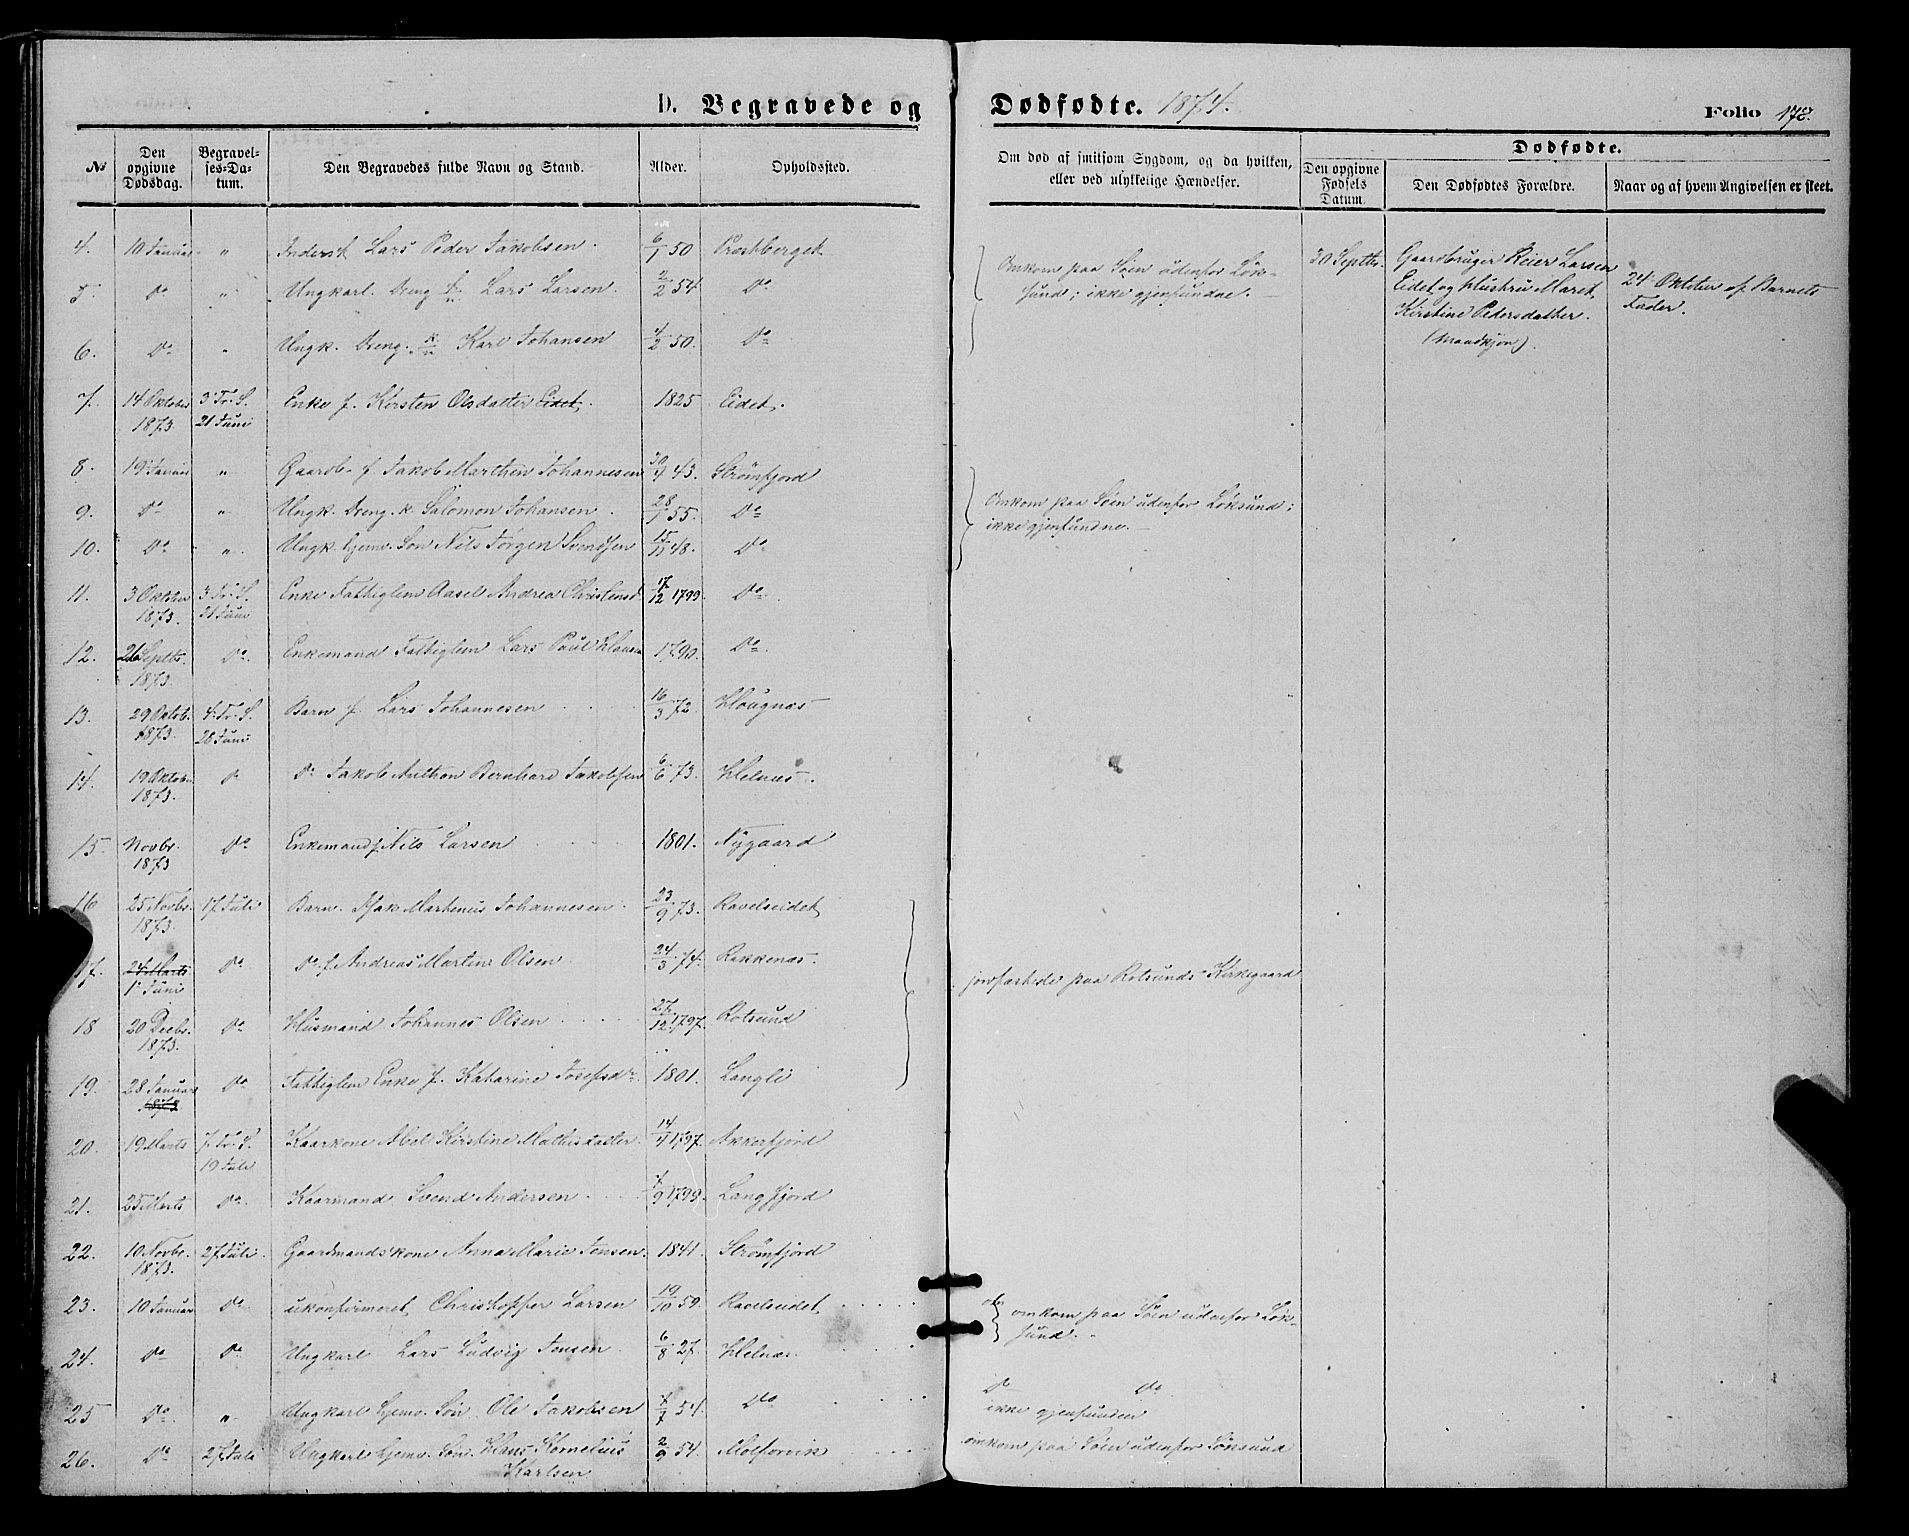 D. Begravede og Dødfødte. 1874. Folio 178.
No Den opgivne Dødsdag. Begravelses-Datum. Den Begravedes fulde Navn og Stand. Alder. Opholdssted. Om død af smitsom Sygdom, og da hvilken, eller ved ulykkelige Hændelser. Dødfødte. Den opgivne Fødsels Datum. Den Dødfødtes Forældre. Naar og af hvem Angivelsen er skeet.
4. 10 Januar " Inderst Lars Peder Jakobsen. 6/1 50 Præstberget
5. Do " Ungkarl. Dreng Lars Larsen. 2/2 54. Do
6. Do " Ungk. Dreng. Karl Johansen 4/2 50. Do
Omkom paa Søen udenfor Løk-
sund; ikke gjenfundne.
30 Septbr. Gaardbruger Reier Larsen
Eidet og Hustru Maret
Kirstine Pedersdatter.
(Mandkjøn).
24 Oktober af Barnets
Fader.
7. 14 Oktober 1873. 3 Tr. S. 21 Juni Enke f. Kirsten Olsdatter Eidet. 1825 Eidet.
8. 19 Januar " Gaardb. f. Jakob Marthin Johannesen 30/4 43. Strømfjord
9. Do " Ungk. Dreng. k. Salomon Johansen. 28/1 55. Do
10. Do " Ungk. hjemv. Søn Nils Jørgen Svendsen 15/11 48. Do
Omkom paa Søen udenfor Løksund;
ikke gjenfundne.
11. 3 Oktober 1873. 3 Tr. S. 21 Juni Enke Fattiglem Aasel Andrea Christensd. 17/12 1799. Do
12. 26 Septbr. 1873. Do Enkemand Fattiglem Lars Paul Hansen 1790. Do
13. 29 Oktob. 1873. 4. Tr. S. 28 Juni Barn f. Lars Johannesen 16/3 72 Hougnæs
14. 19 Oktob. 1873. Do Do Jakob Anthon Bernhard Jakobsen 6/6 73. Helnæs.
15 Novbr. 1873 Do Enkemand f. Nils Larsen 1801. Nygaard
16 25 Novbr. 1873. 17 Juli Barn. Isak Martinus Johannesen 23/9 73. Ravelseidet
17. 24 Marts 1 Juni Do Do f. Andreas Martin Olsen 24/3 74. Rakkenæs.
18 20 Decbr. 1873. Do Husmand Johannes Olsen 27/12 1797. Rotsund
19. 28 Januar 1873 Do Fattiglem Enke f. Katarine Josefsdr. 1801. Langli
jordfæstede paa Rotsunds Kirkegaard
20. 19 Marts 7. Tr. S. 19 Juli Kaarkone Abel Kirstine Mathisdatter 14/4 1797. Akkerfjord
21. 25 Marts Do Kaarmand Svend Andersen 7/9 1799. Langfjord
22. 10 Novbr. 1873. 27 Juli. Gaardmandskone Anna Marie Jensen. 1841. Strømfjord
23. 10 Januar Do ukonfirmeret Christopher Larsen 19/10 59. Ravelseidet
24. Do Do Ungkarl Lars Ludvig Jensen. 6/8 27. Helnæs
omkom paa Søen udenfor Løk-
sund.
25 Do " Ungkarl hjemv. Søn. Ole Jakobsen 7/7 54. Do Do Do
ikke gjenfunden
26. Do 27 Juli Ungkarl hjemv. Søn. Hans Kornelius 2/9 54. omkom paa Søen udenfor Løksund
Karlsen